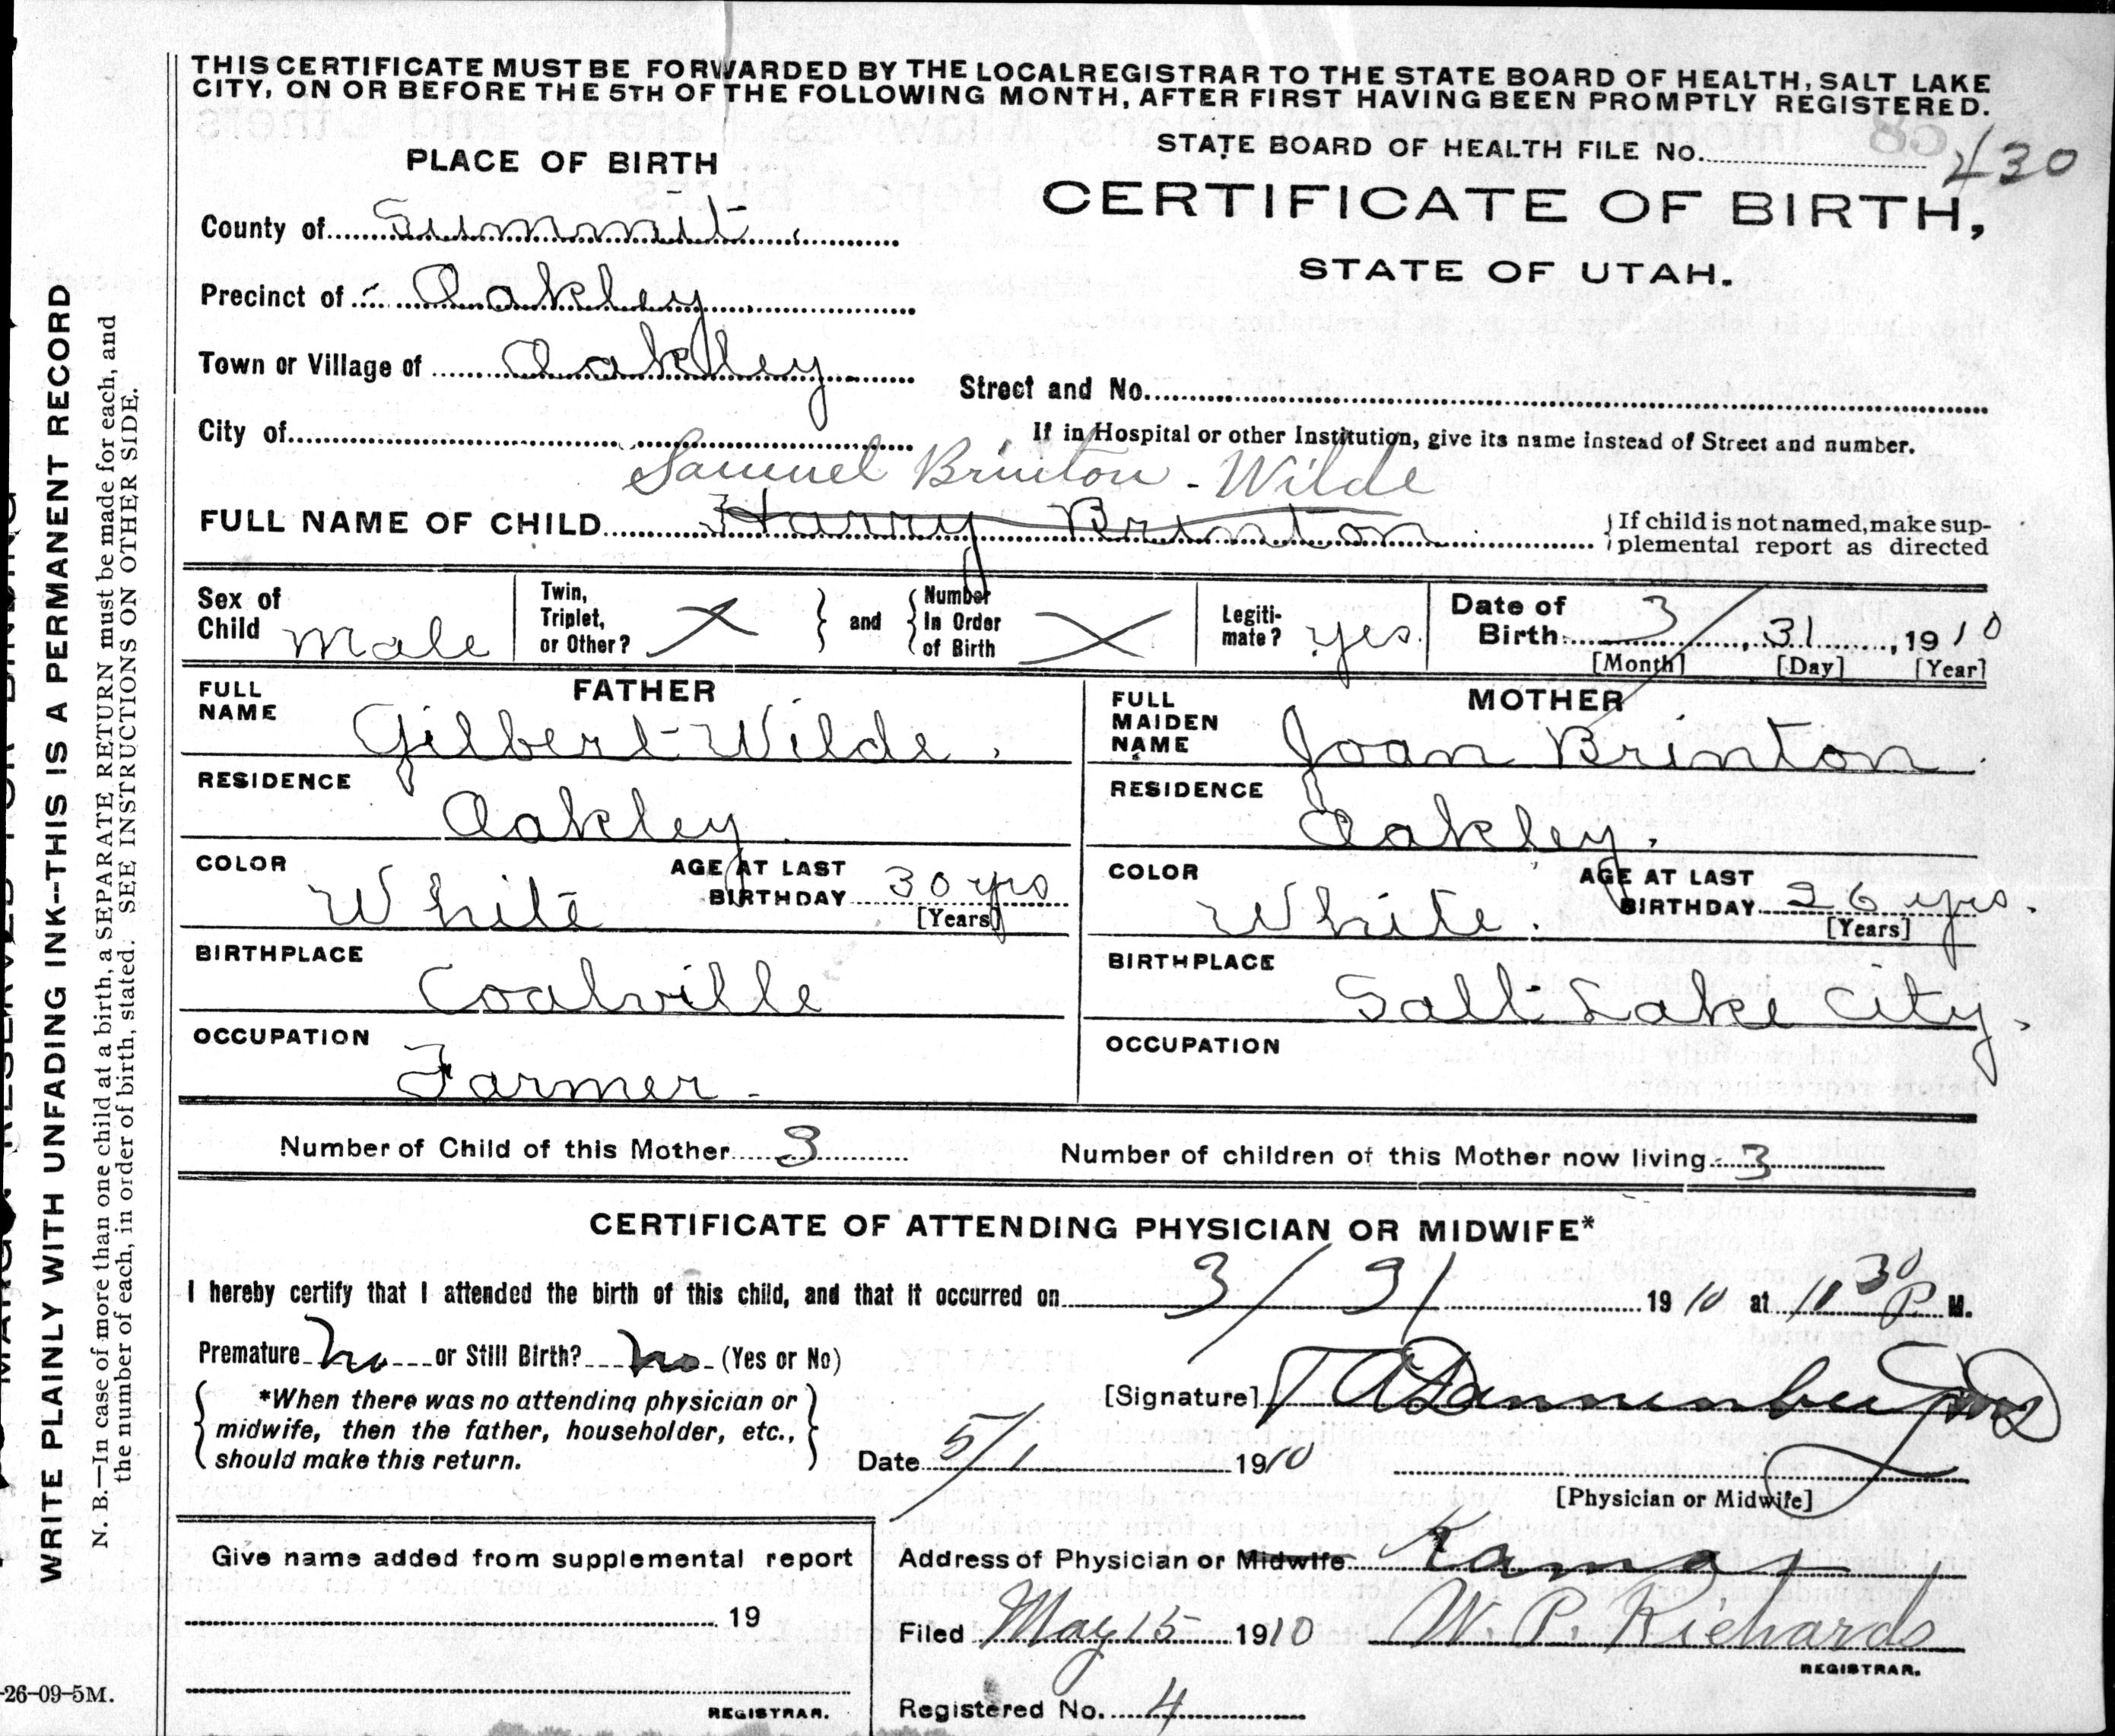 THIS CERTIFICATE MUST BE FORWARDED BY THE LOCAL REGISTRAR TO THE STATE BOARD OF HEALTH, SALT LAKE
CITY, ON OR BEFORE THE 5TH OF THE FOLLOWING MONTH, AFTER FIRST HAVING BEEN PROMPTLY REGISTERED.
STATE BOARD OF HEALTH FILE No. 430
PLACE OF BIRTH
CERTIFICATE OF BIRTH,
STATE OF UTAH.
County of Summit
Precinct of Oakley
Town or Village of Oakley
Street and No.
City of
If in Hospital or other Institution, give its name instead of Street and number.
Samuel Brinton - Wilde
FULL NAME OF CHILD Harry Brinton
If child is not named, make sup-
plemental report as directed
Sex of Child Male
Twin, Triplet, or Other? X
and
Number In Order of Birth X
Legiti-
mate? yes.
Date of Birth 3 / , 31 , 1910
[Month] [Day] [Year]
FATHER
FULL NAME Gilbert Wilde.
RESIDENCE Oakley.
COLOR White
AGE AT LAST BIRTHDAY 30 yrs
[Years]
BIRTHPLACE Coalville
OCCUPATION Farmer.
MOTHER
FULL MAIDEN NAME Joan Brinton.
RESIDENCE Oakley.
COLOR White.
AGE AT LAST BIRTHDAY 26 yrs.
[Years]
BIRTHPLACE Salt Lake City.
OCCUPATION
Number of Child of this Mother 3
Number of children of this Mother now living 3
CERTIFICATE OF ATTENDING PHYSICIAN OR MIDWIFE*
I hereby certify that I attended the birth of this child, and that it occurred on 3/31 1910 at 11 30 P M.
Premature no or Still Birth? no (Yes or No)
*When there was no attending physician or
midwife, then the father, householder, etc.,
should make this return.
[Signature] T A Dannenberg
Date 5/1 1910
[Physician or Midwife]
Give name added from supplemental report
19
REGISTRAR.
Address of Physician or Midwife Kamas
Filed May 15 1910 W. P. Richards
REGISTRAR.
Registered No. 4
WRITE PLAINLY WITH UNFADING INK--THIS IS A PERMANENT RECORD
N. B.—In case of more than one child at a birth, a SEPARATE RETURN must be made for each, and
the number of each, in order of birth, stated. SEE INSTRUCTIONS ON OTHER SIDE.
-26-09-5M.